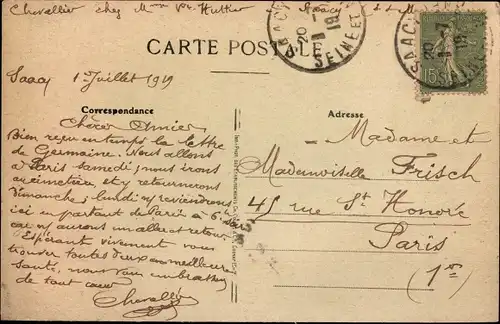 Chevallier chez Mme Vr. Huttier Saacy S & M
SAACY
20 -7
19
SEINE ET
SAACY
20 -7
19
SEINE
15
CARTE POSTALE
Saacy 1er Juillet 1919
Correspondance
Adresse
Chères Amies
Bien reçu en temps la lettre
de Germaine. Nous allons
à Paris Samedi; nous irons
au cimetière, et y retournerons
Dimanche; lundi n/ reviendrons
ici en partant de Paris à 6h
car n/ aurons un aller et retour.
Espérant vivement vous
trouver toutes deux en meilleure
Santé, nous vous embrassons
de tout cœur
Chevallier
Madame et
Mademoiselle Frisch
45 rue St. Honoré
Paris
(1er)